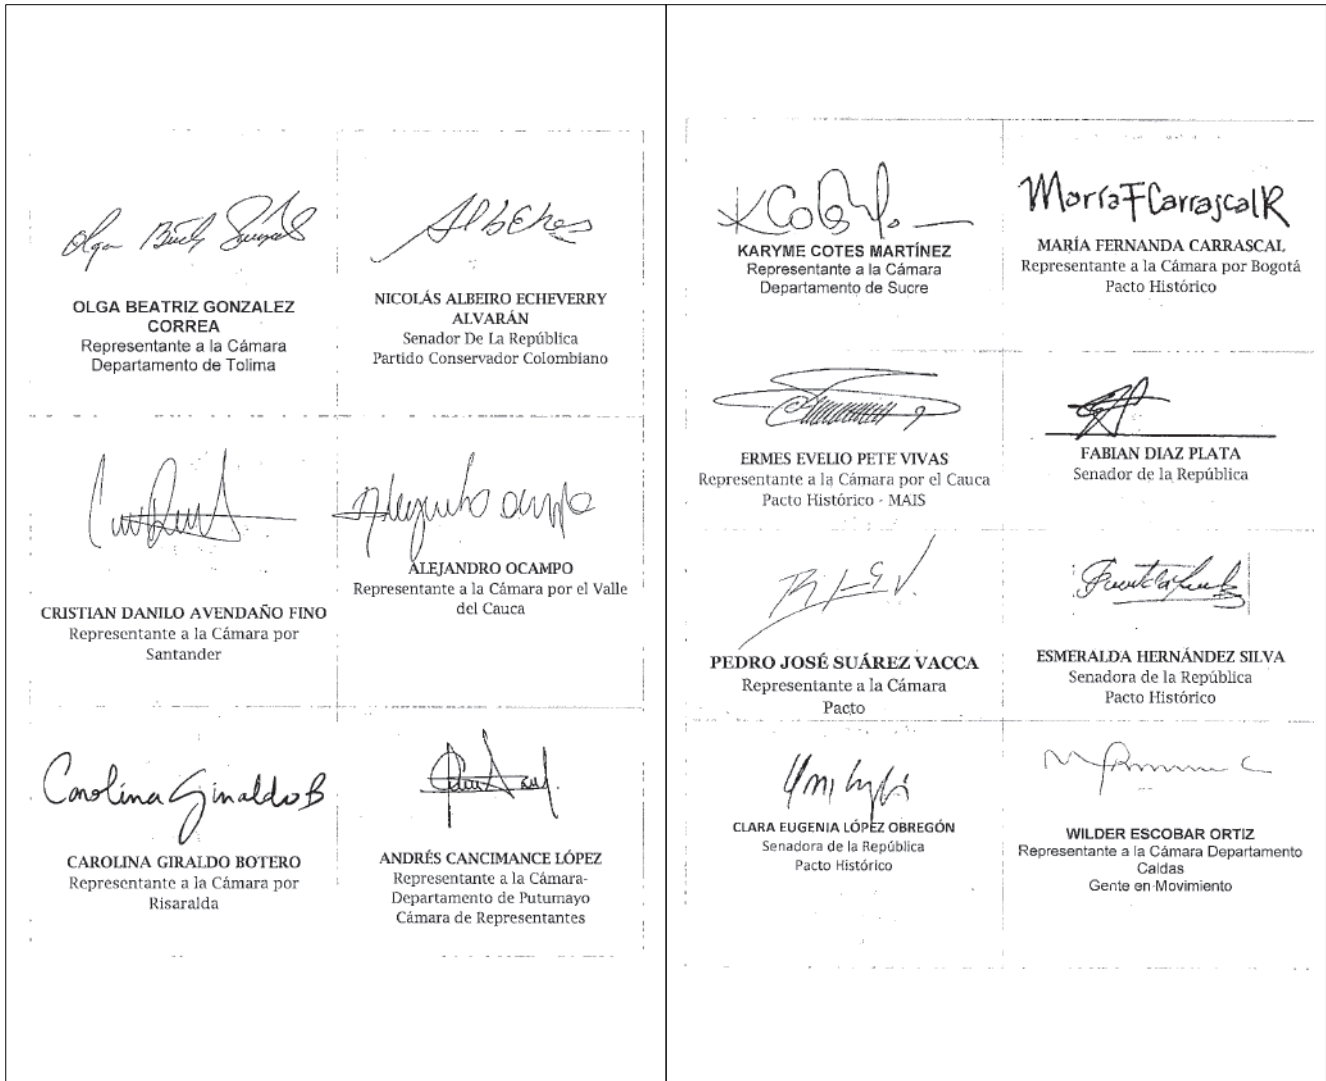 Olga Beatriz González
OLGA BEATRIZ GONZALEZ
CORREA
Representante a la Cámara
Departamento de Tolima
NICOLÁS ALBEIRO ECHEVERRY
ALVARÁN
Senador De La República
Partido Conservador Colombiano
CRISTIAN DANILO AVENDAÑO FINO
Representante a la Cámara por
Santander
Alejandro Ocampo
ALEJANDRO OCAMPO
Representante a la Cámara por el Valle
del Cauca
Carolina Giraldo B
CAROLINA GIRALDO BOTERO
Representante a la Cámara por
Risaralda
ANDRÉS CANCIMANCE LÓPEZ
Representante a la Cámara-
Departamento de Putumayo
Cámara de Representantes
KARYME COTES MARTÍNEZ
Representante a la Cámara
Departamento de Sucre
María F Carrascal R
MARÍA FERNANDA CARRASCAL
Representante a la Cámara por Bogotá
Pacto Histórico
ERMES EVELIO PETE VIVAS
Representante a la Cámara por el Cauca
Pacto Histórico - MAIS
FABIAN DIAZ PLATA
Senador de la República
PEDRO JOSÉ SUÁREZ VACCA
Representante a la Cámara
Pacto
ESMERALDA HERNÁNDEZ SILVA
Senadora de la República
Pacto Histórico
CLARA EUGENIA LÓPEZ OBREGÓN
Senadora de la República
Pacto Histórico
WILDER ESCOBAR ORTIZ
Representante a la Cámara Departamento
Caldas
Gente en Movimiento